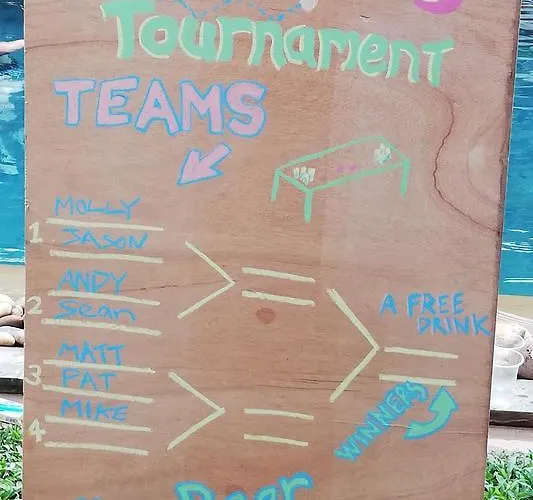 Tournament
TEAMS
MOLLY
1
JASON
ANDY
2
Sean
MATT
3
PAT
MIKE
4
A FREE
DRINK
WINNERS
Beer